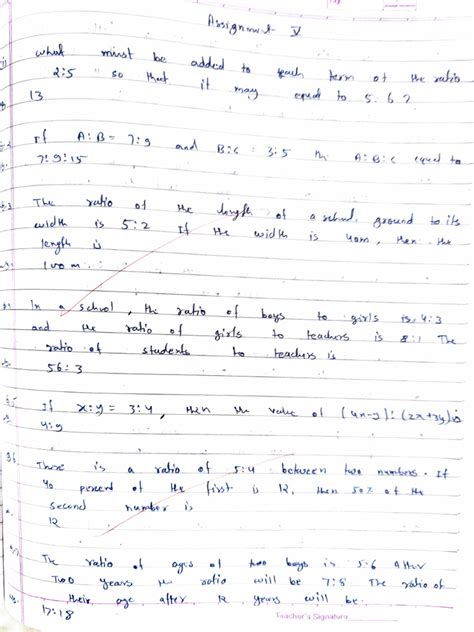 Assignment V
what must be added to each term of the ratio
2:5 so that it may equal to 5:6?
13
If A:B = 7:9 and B:C = 3:5 then A:B:C equal to
7:9:15
The ratio of the length of a school ground to its
width is 5:2 If the width is 40m, then the
length is
100m.
In a school, the ratio of boys to girls is 4:3
and the ratio of girls to teachers is 8:1 The
ratio of students to teachers is
56:3
If x:y = 3:4, then the value of (4x-y):(2x+3y) is
4:9
There is a ratio of 5:4 between two numbers. If
40 percent of the first is 12, then 50% of the
second number is
12
The ratio of ages of two boys is 5:6 After
Two years the ratio will be 7:8 The ratio of
their age after 12 years will be
17:18
Teacher's Signature